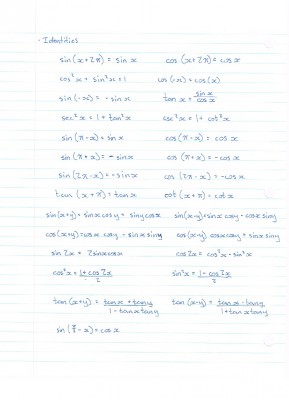 · Identities
sin(x+2π) = sin x    cos(x+2π) = cos x
cos²x + sin²x = 1    cos(-x) = cos(x)
sin(-x) = - sin x    tan x = sin x / cos x
sec²x = 1 + tan²x    csc²x = 1 + cot²x
sin(π-x) = sin x    cos(π-x) = - cos x
sin(π+x) = - sin x    cos(π+x) = - cos x
sin(2π-x) = - sin x    cos(2π-x) = - cos x
tan(x+π) = tan x    cot(x+π) = cot x
sin(x+y) = sin x cos y + sin y cos x    sin(x-y) = sin x cos y - cos x sin y
cos(x+y) = cos x cos y - sin x sin y    cos(x-y) = cos x cos y + sin x sin y
sin 2x = 2 sin x cos x    cos 2x = cos²x - sin²x
cos²x = 1 + cos 2x / 2    sin²x = 1 - cos 2x / 2
tan(x+y) = tan x + tan y / 1 - tan x tan y    tan(x-y) = tan x - tan y / 1 + tan x tan y
sin(π/2 - x) = cos x